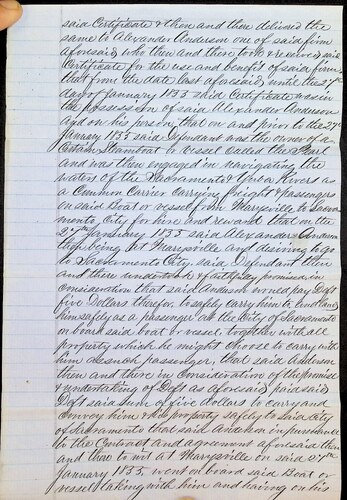 said Certificate & then and there delivered the
same to Alexander Anderson one of said firm
aforesaid who then and there took & received said
Certificate for the use and benefit of said firm
that from the date last aforesaid until the 27th
day of January 1855 said Certificate was in
the possession of said Alexander Anderson
and on his person, that on and prior to the 27th
January 1855 said Defendant was the owner of a
Certain Steamboat or vessel called the Pearl
and was then engaged in navigating the
waters of the Sacramento & Yuba Rivers as
a Common Carrier carrying freight & passengers
on said Boat or vessel from Marysville to Sacra-
mento City for hire and reward that on the
27th January 1855 said Alexander Anderson
then being at Marysville and desiring to go
to Sacramento City, said Defendant then
and there undertook & faithfully promised in
consideration that said Anderson would pay Deft
five Dollars therefor, to safely carry him to & and land
him safely as a passenger at the City of Sacramento
on board said boat or vessel together with all
property which he might choose to carry with
him as such passenger, that said Anderson
then and there in Consideration of the promise
& undertaking of Deft as aforesaid paid said
Deft said sum of five dollars to carry and
convey him & his property safely to said City
of Sacramento that said Anderson in pursuance
to the Contract and agreement aforesaid then
and there to wit at Marysville on said 27th
January 1855, went on board said Boat or
vessel taking with him and having on his